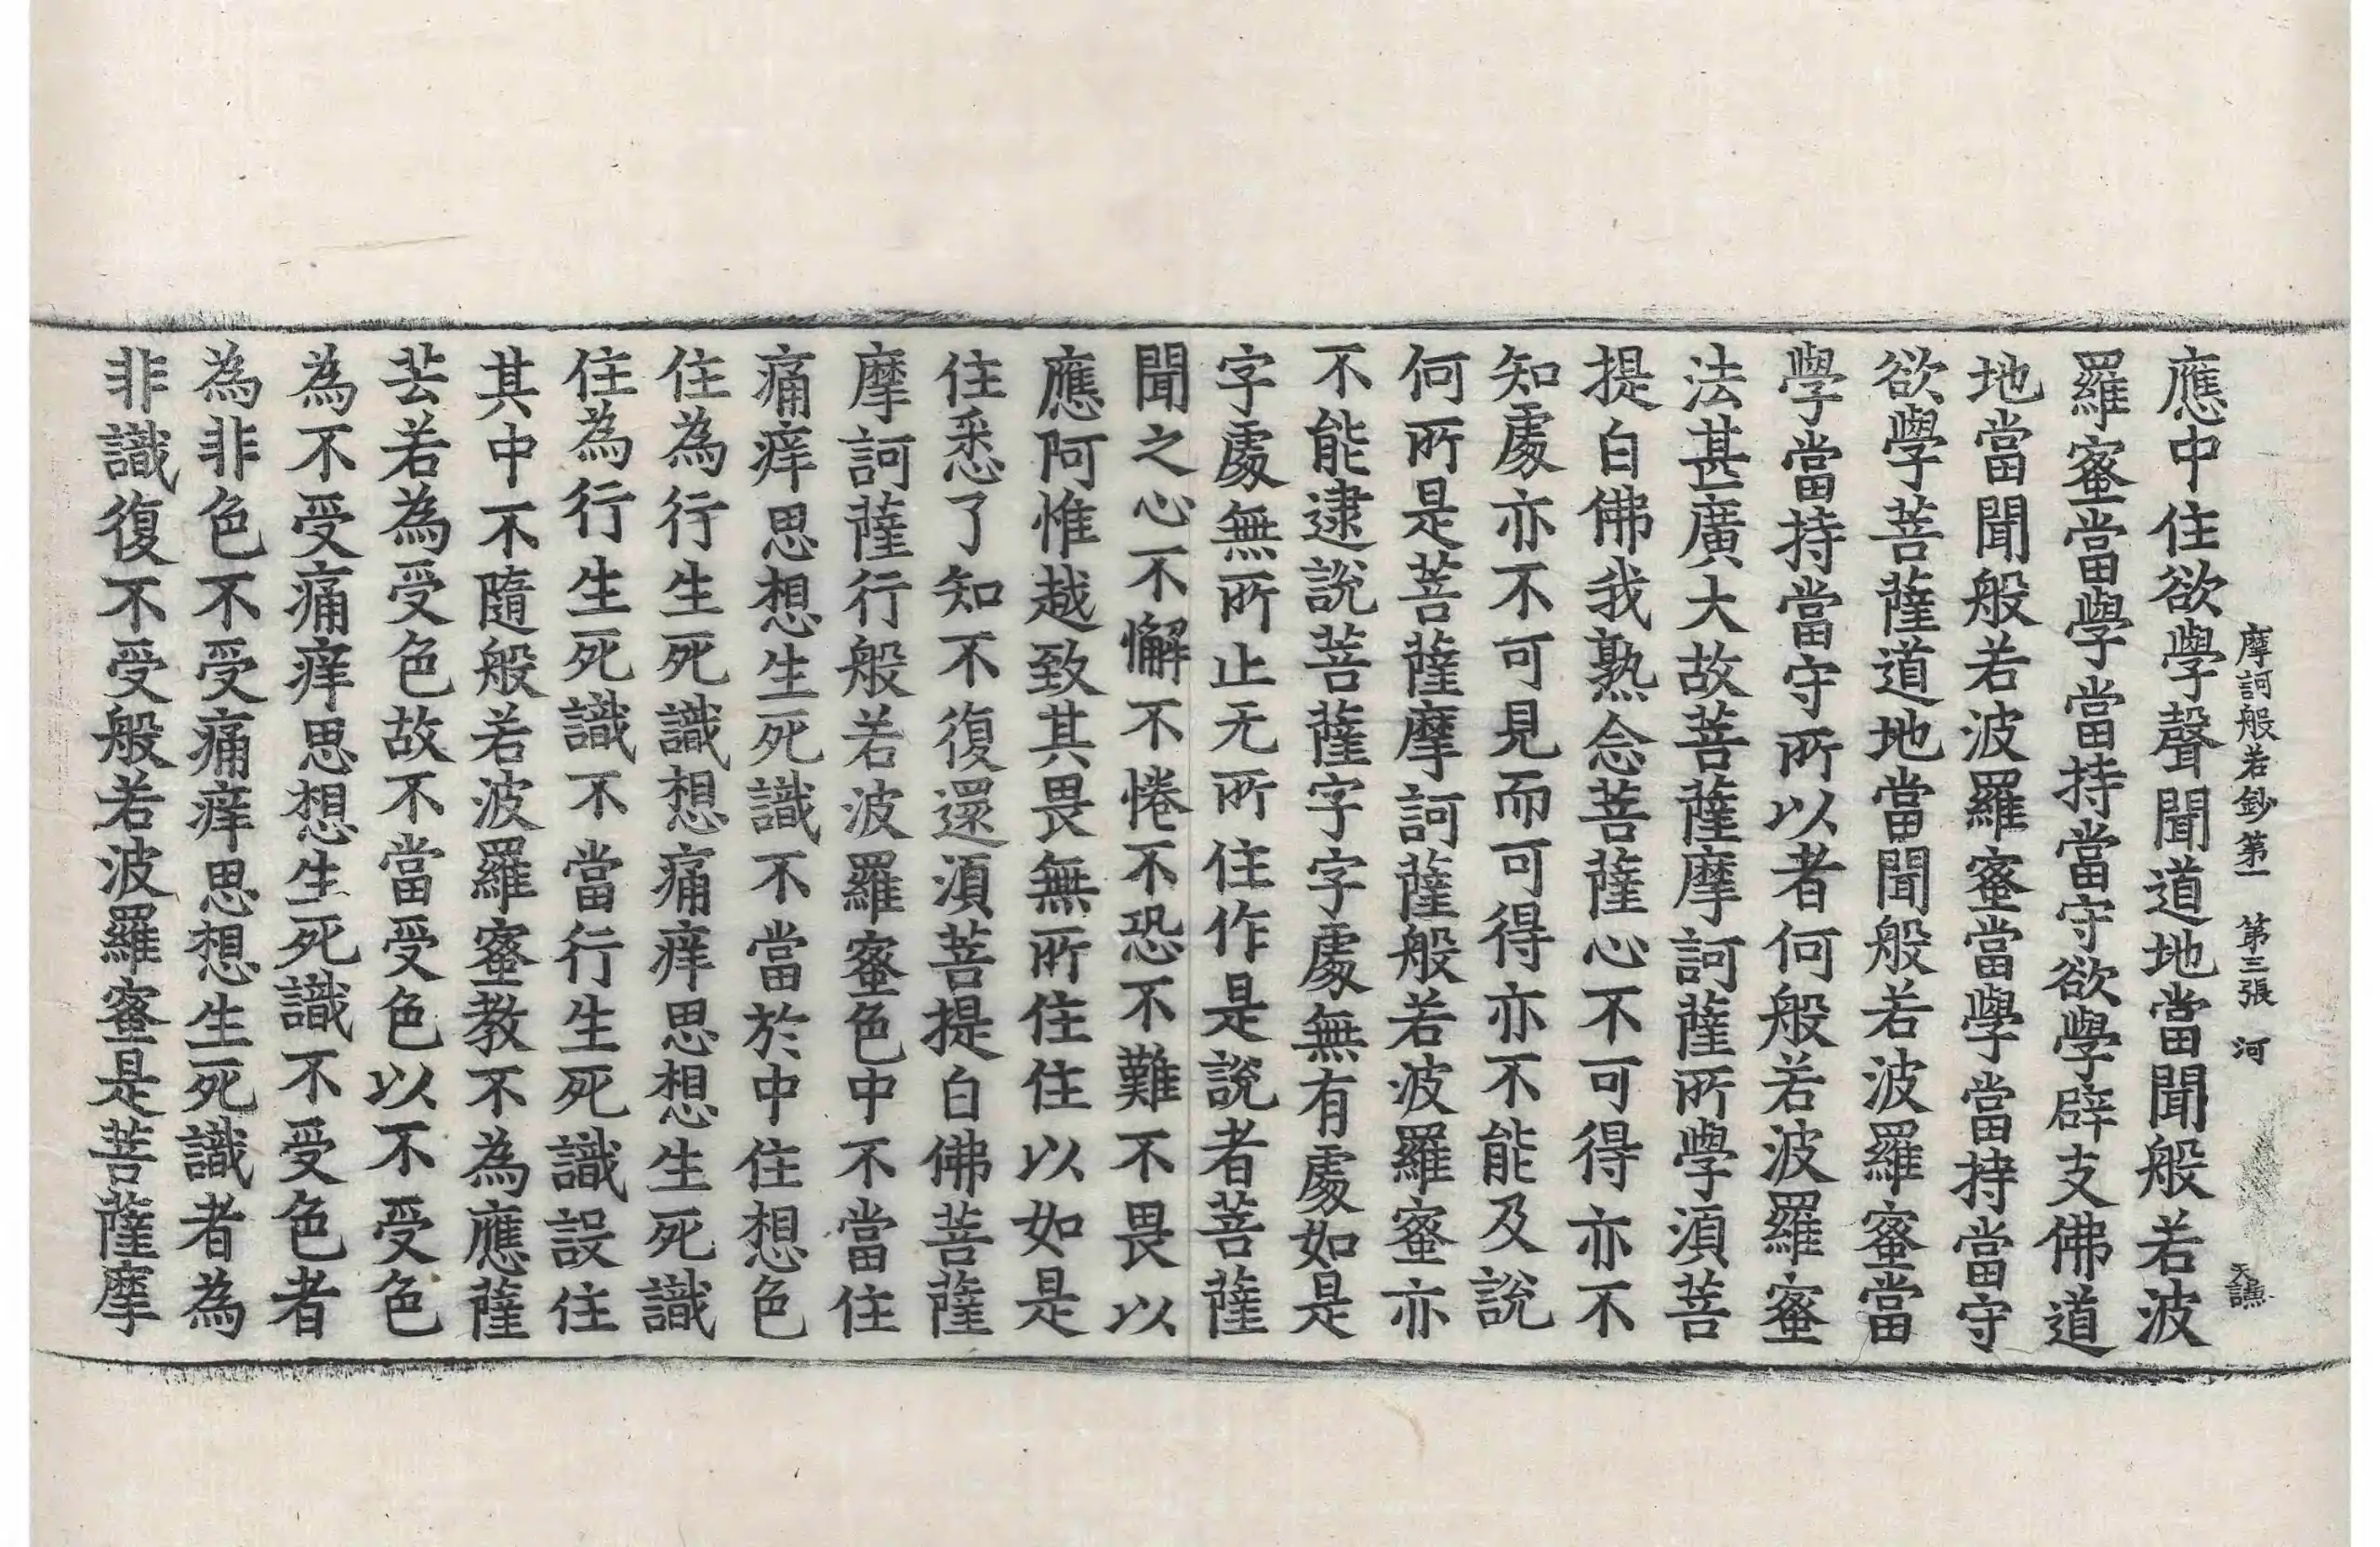 摩訶般若鈔第一　第三張　河
天譕
應中住欲學聲聞道地當聞般若波
羅蜜當學當持當守欲學辟支佛道
地當聞般若波羅蜜當學當持當守
欲學菩薩道地當聞般若波羅蜜當
學當持當守所以者何般若波羅蜜
法甚廣大故菩薩摩訶薩所學湏菩
提白佛我熟念菩薩心不可得亦不
知處亦不可見而可得亦不能及說
何所是菩薩摩訶薩般若波羅蜜亦
不能逮說菩薩字字處無有處如是
字處無所止无所住作是說者菩薩
聞之心不懈不惓不恐不難不畏以
應阿惟越致其畏無所住住以如是
住悉了知不復還湏菩提白佛菩薩
摩訶薩行般若波羅蜜色中不當住
痛痒思想生死識不當於中住想色
住為行生死識想痛痒思想生死識
住為行生死識不當行生死識設住
其中不隨般若波羅蜜教不為應薩
芸若為受色故不當受色以不受色
為不受痛痒思想生死識不受色者
為非色不受痛痒思想生死識者為
非識復不受般若波羅蜜是菩薩摩